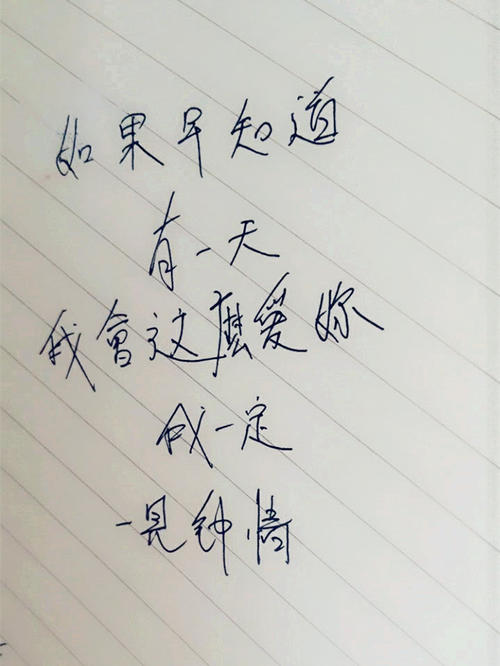 如果早知道
有一天
我會这麼爱妳
我一定
一見钟情